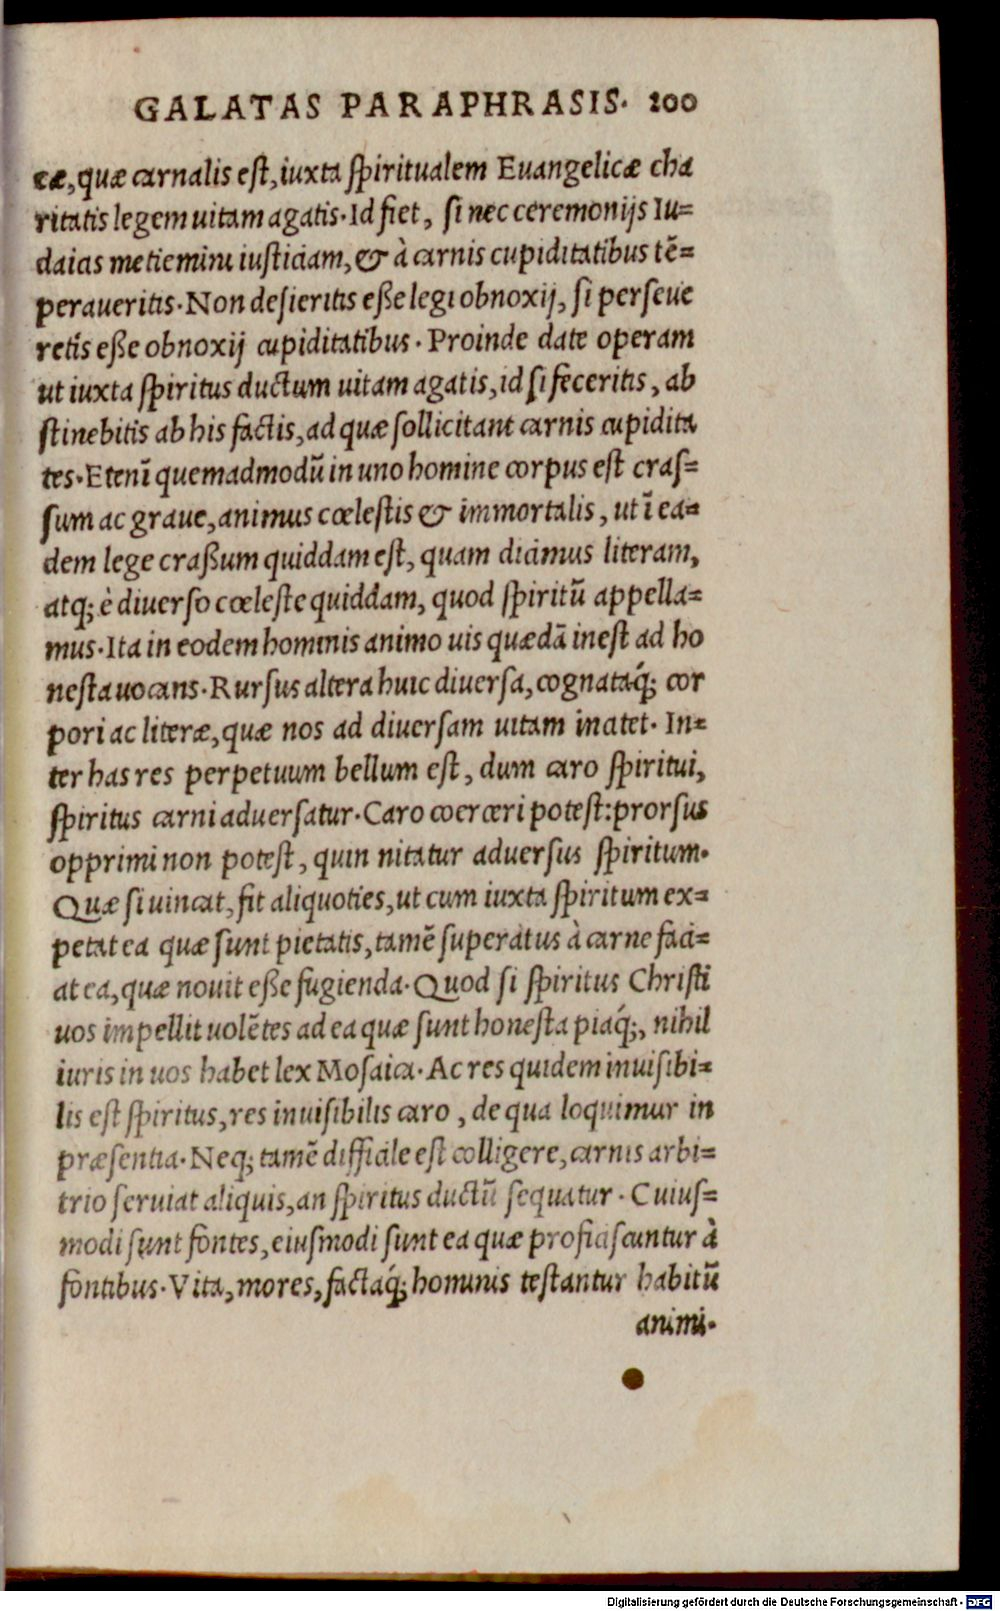 GALATAS PARAPHRASIS. 200
cæ, quæ carnalis est, iuxta spiritualem Euangelicæ cha
ritatis legem uitam agatis. Id fiet, si nec ceremonijs Iu=
daicis metiemini iusticiam, & à carnis cupiditatibus tē=
peraueritis. Non desieritis eße legi obnoxij, si perseue
retis eße obnoxij cupiditatibus. Proinde date operam
ut iuxta spiritus ductum uitam agatis, id si feceritis, ab
stinebitis ab his factis, ad quæ sollicitant carnis cupidita
tes. Etenī quemadmodū in uno homine corpus est cras=
sum ac graue, animus cœlestis & immortalis, ut ī ea=
dem lege craßum quiddam est, quam dicimus literam,
atq; è diuerso cœleste quiddam, quod spiritū appella=
mus. Ita in eodem hominis animo uis quædā inest ad ho
nesta uocans. Rursus altera huic diuersa, cognataq́; cor
pori ac literæ, quæ nos ad diuersam uitam incitet. In=
ter has res perpetuum bellum est, dum caro spiritui,
spiritus carni aduersatur. Caro coerceri potest: prorsus
opprimi non potest, quin nitatur aduersus spiritum.
Quæ si uincat, fit aliquoties, ut cum iuxta spiritum ex=
petat ea quæ sunt pietatis, tamē superatus à carne faci=
at ea, quæ nouit eße fugienda. Quod si spiritus Christi
uos impellit uolētes ad ea quæ sunt honesta piaq́;, nihil
iuris in uos habet lex Mosaica. Ac res quidem inuisibi=
lis est spiritus, res inuisibilis caro, de qua loquimur in
præsentia. Neq; tamē difficile est colligere, carnis arbi=
trio seruiat aliquis, an spiritus ductū sequatur. Cuius=
modi sunt fontes, eiusmodi sunt ea quæ proficiscuntur à
fontibus. Vita, mores, factaq́; hominis testantur habitū
animi.
Digitalisierung gefördert durch die Deutsche Forschungsgemeinschaft - DFG